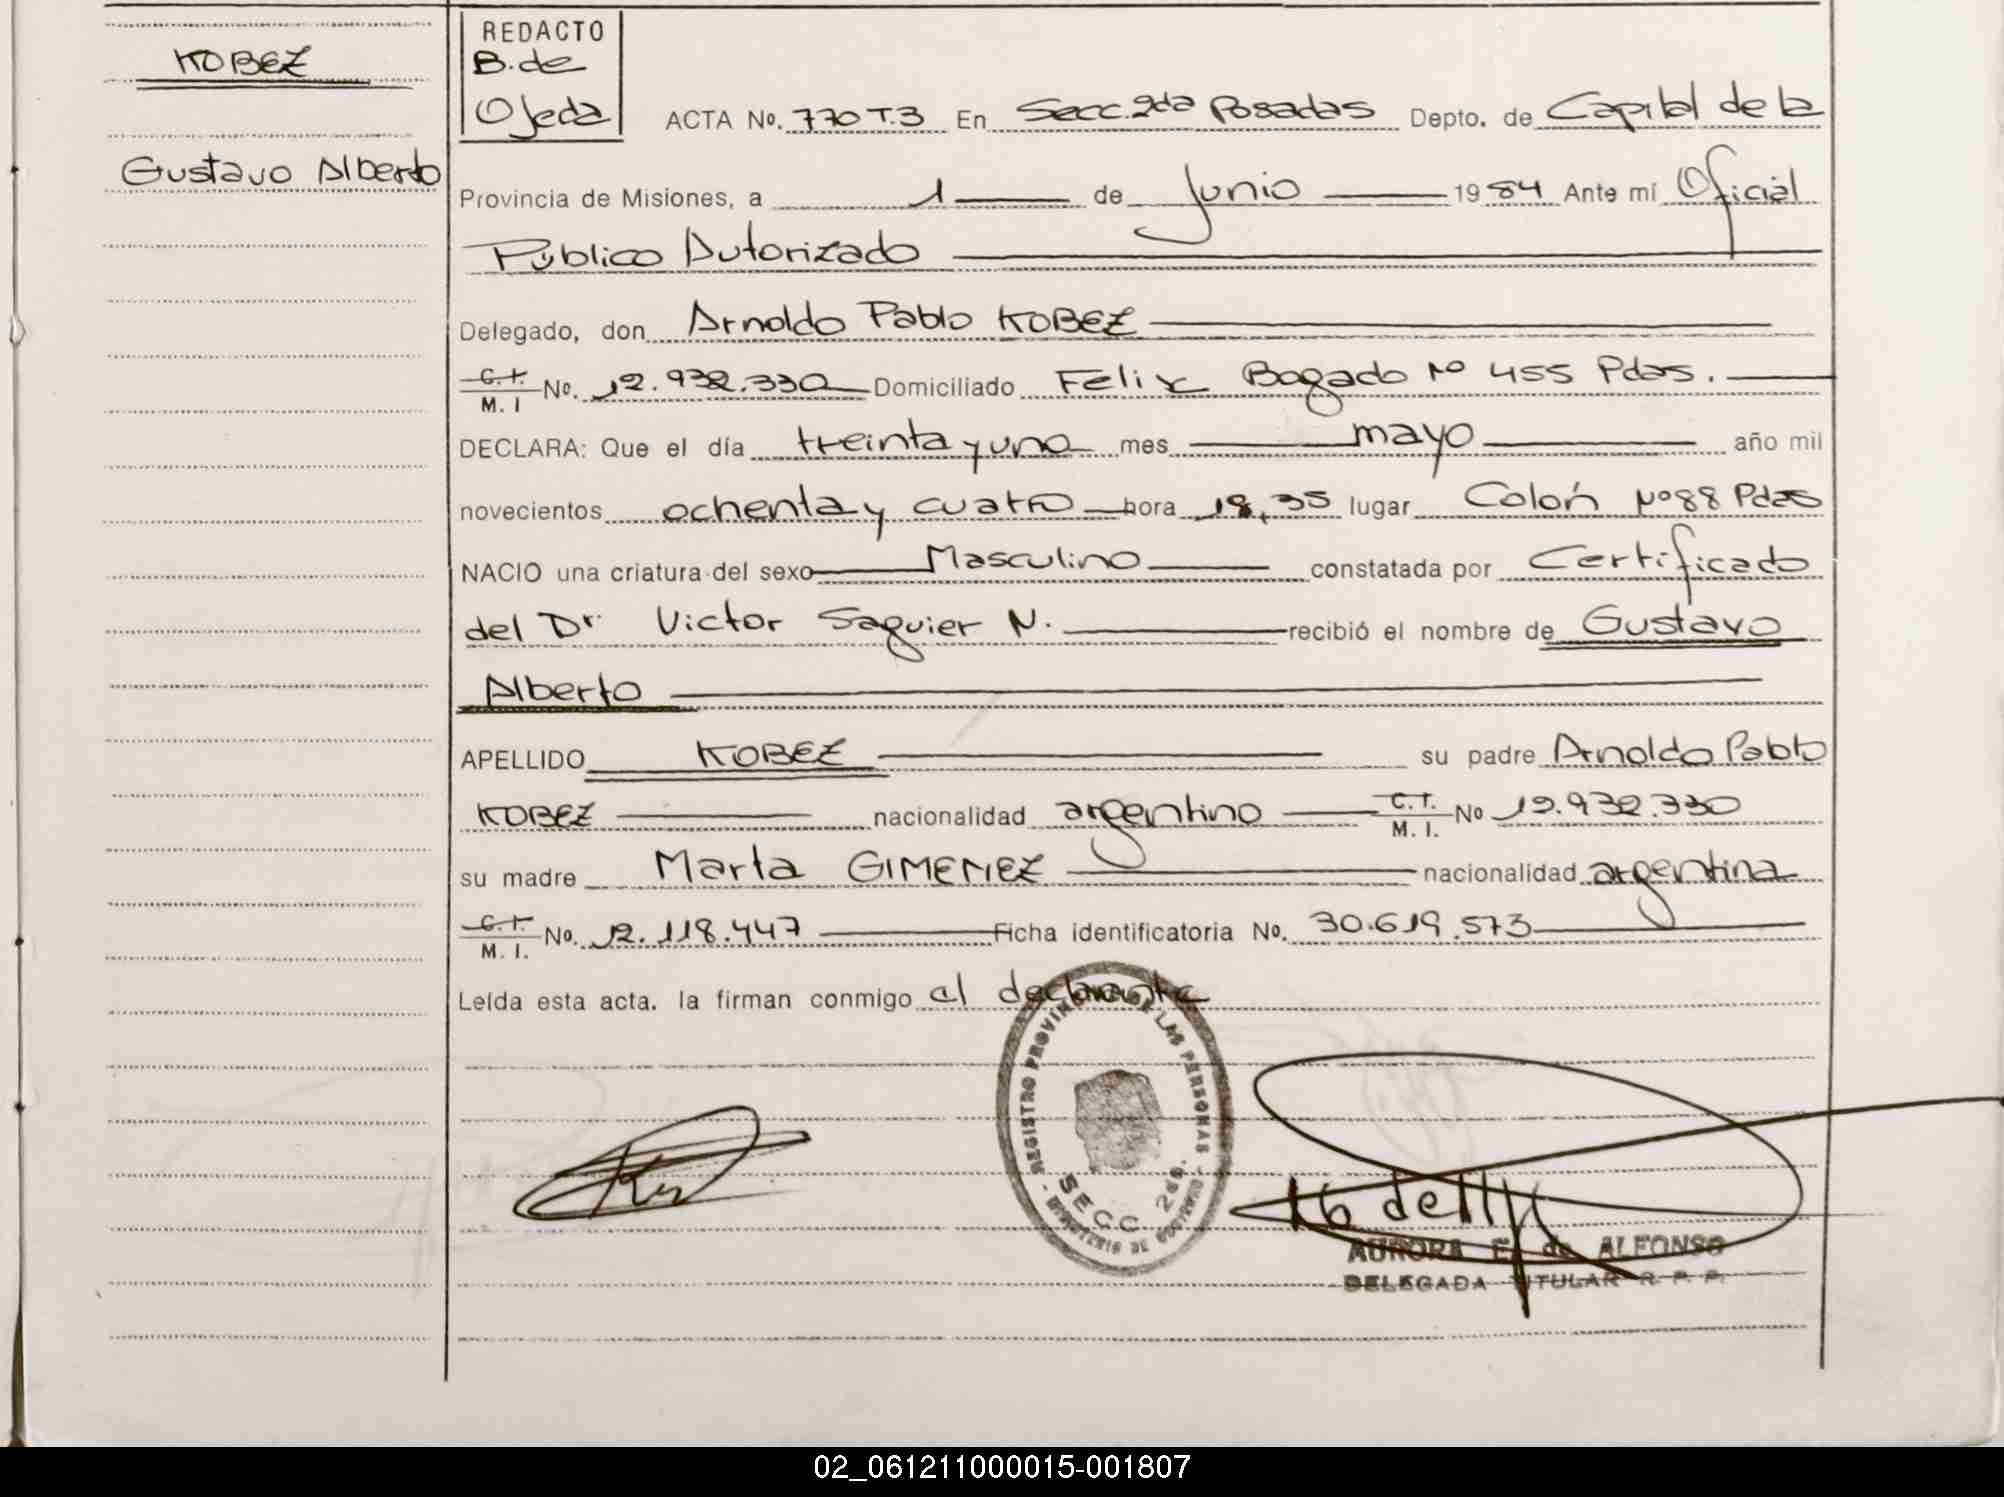 KOBEZ
Gustavo Alberto
REDACTO
B. de
Ojeda
ACTA No. 770 T.3 En Secc. 2da Posadas Depto. de Capital de la
Provincia de Misiones, a 1 de Junio 1984 Ante mí Oficial
Público Autorizado
Delegado, don Arnoldo Pablo KOBEZ
C.I. M. I No. 12.932.330 Domiciliado Felix Bogado Nº 455 Pdas.
DECLARA: Que el día treinta y uno mes mayo año mil
novecientos ochenta y cuatro hora 18,35 lugar Colón Nº 88 Pdas
NACIO una criatura del sexo Masculino constatada por Certificado
del Dr. Victor Saguier N. recibió el nombre de Gustavo
Alberto
APELLIDO KOBEZ su padre Arnoldo Pablo
KOBEZ nacionalidad argentino C.I. M. I. No 12.932.330
su madre Marta GIMENEZ nacionalidad argentina
C.I. M. I. No. 12.118.447 Ficha identificatoria No. 30.619.573
Leída esta acta. la firman conmigo el declarante
REGISTRO PROVINCIAL DE LAS PERSONAS
SECC 2da.
- MINISTERIO DE GOBIERNO -
AURORA E. de ALFONSO
DELEGADA TITULAR R. P. P.
02_061211000015-001807